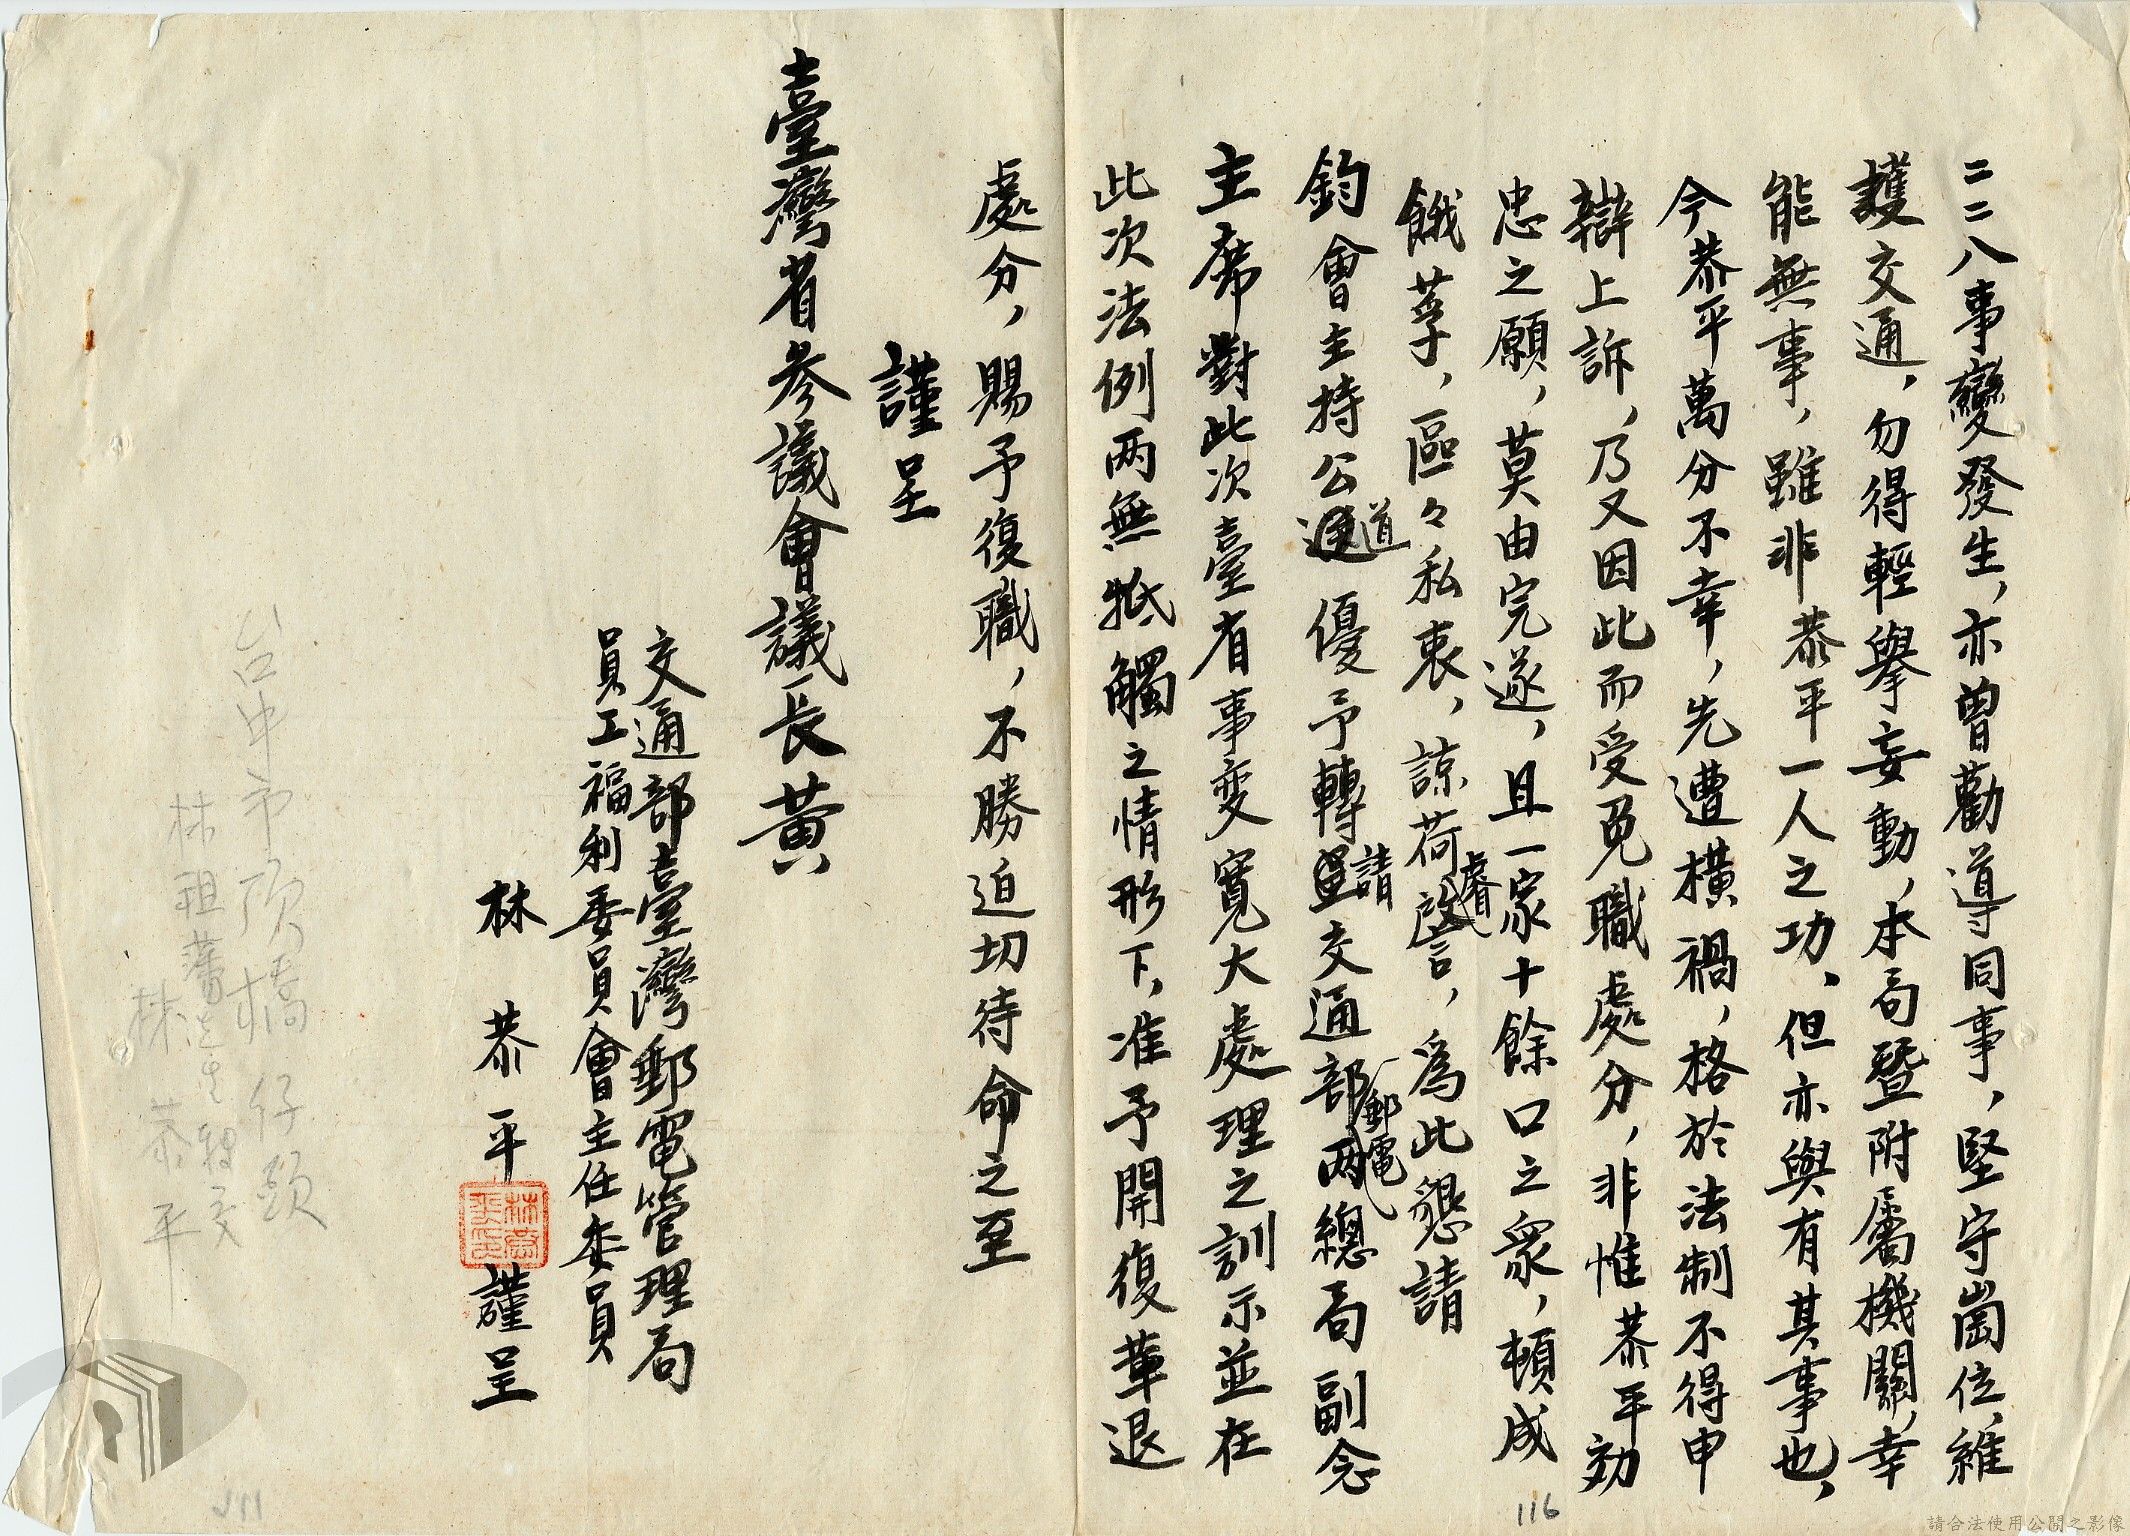 二二八事變發生,亦曾勸導同事,堅守崗位,維
護交通,勿得輕舉妄動,本局暨附屬機關,幸
能無事,雖非恭平一人之功、但亦與有其事也、
今恭平萬分不幸,先遭橫禍,格於法制不得申
辯上訴,乃又因此而受免職處分,非惟恭平効
忠之願,莫由完遂,且一家十餘口之衆,頓成
餓莩,區々私衷,諒荷睿詧,為此懇請
鈞會主持公道優予轉請交通部郵電兩總局副念
主席對此次臺省事变寬大處理之訓示並在
此次法例两無牴觸之情形下,准予開復革退
處分,賜予復職,不勝迫切待命之至
謹呈
臺灣省參議會議長黃
交通部臺灣郵電管理局
員工福利委員會主任委員
林恭平謹呈
台中市頂橋仔頭
林祖藩先生轉交
林恭平
116
請合法使用公開之影像